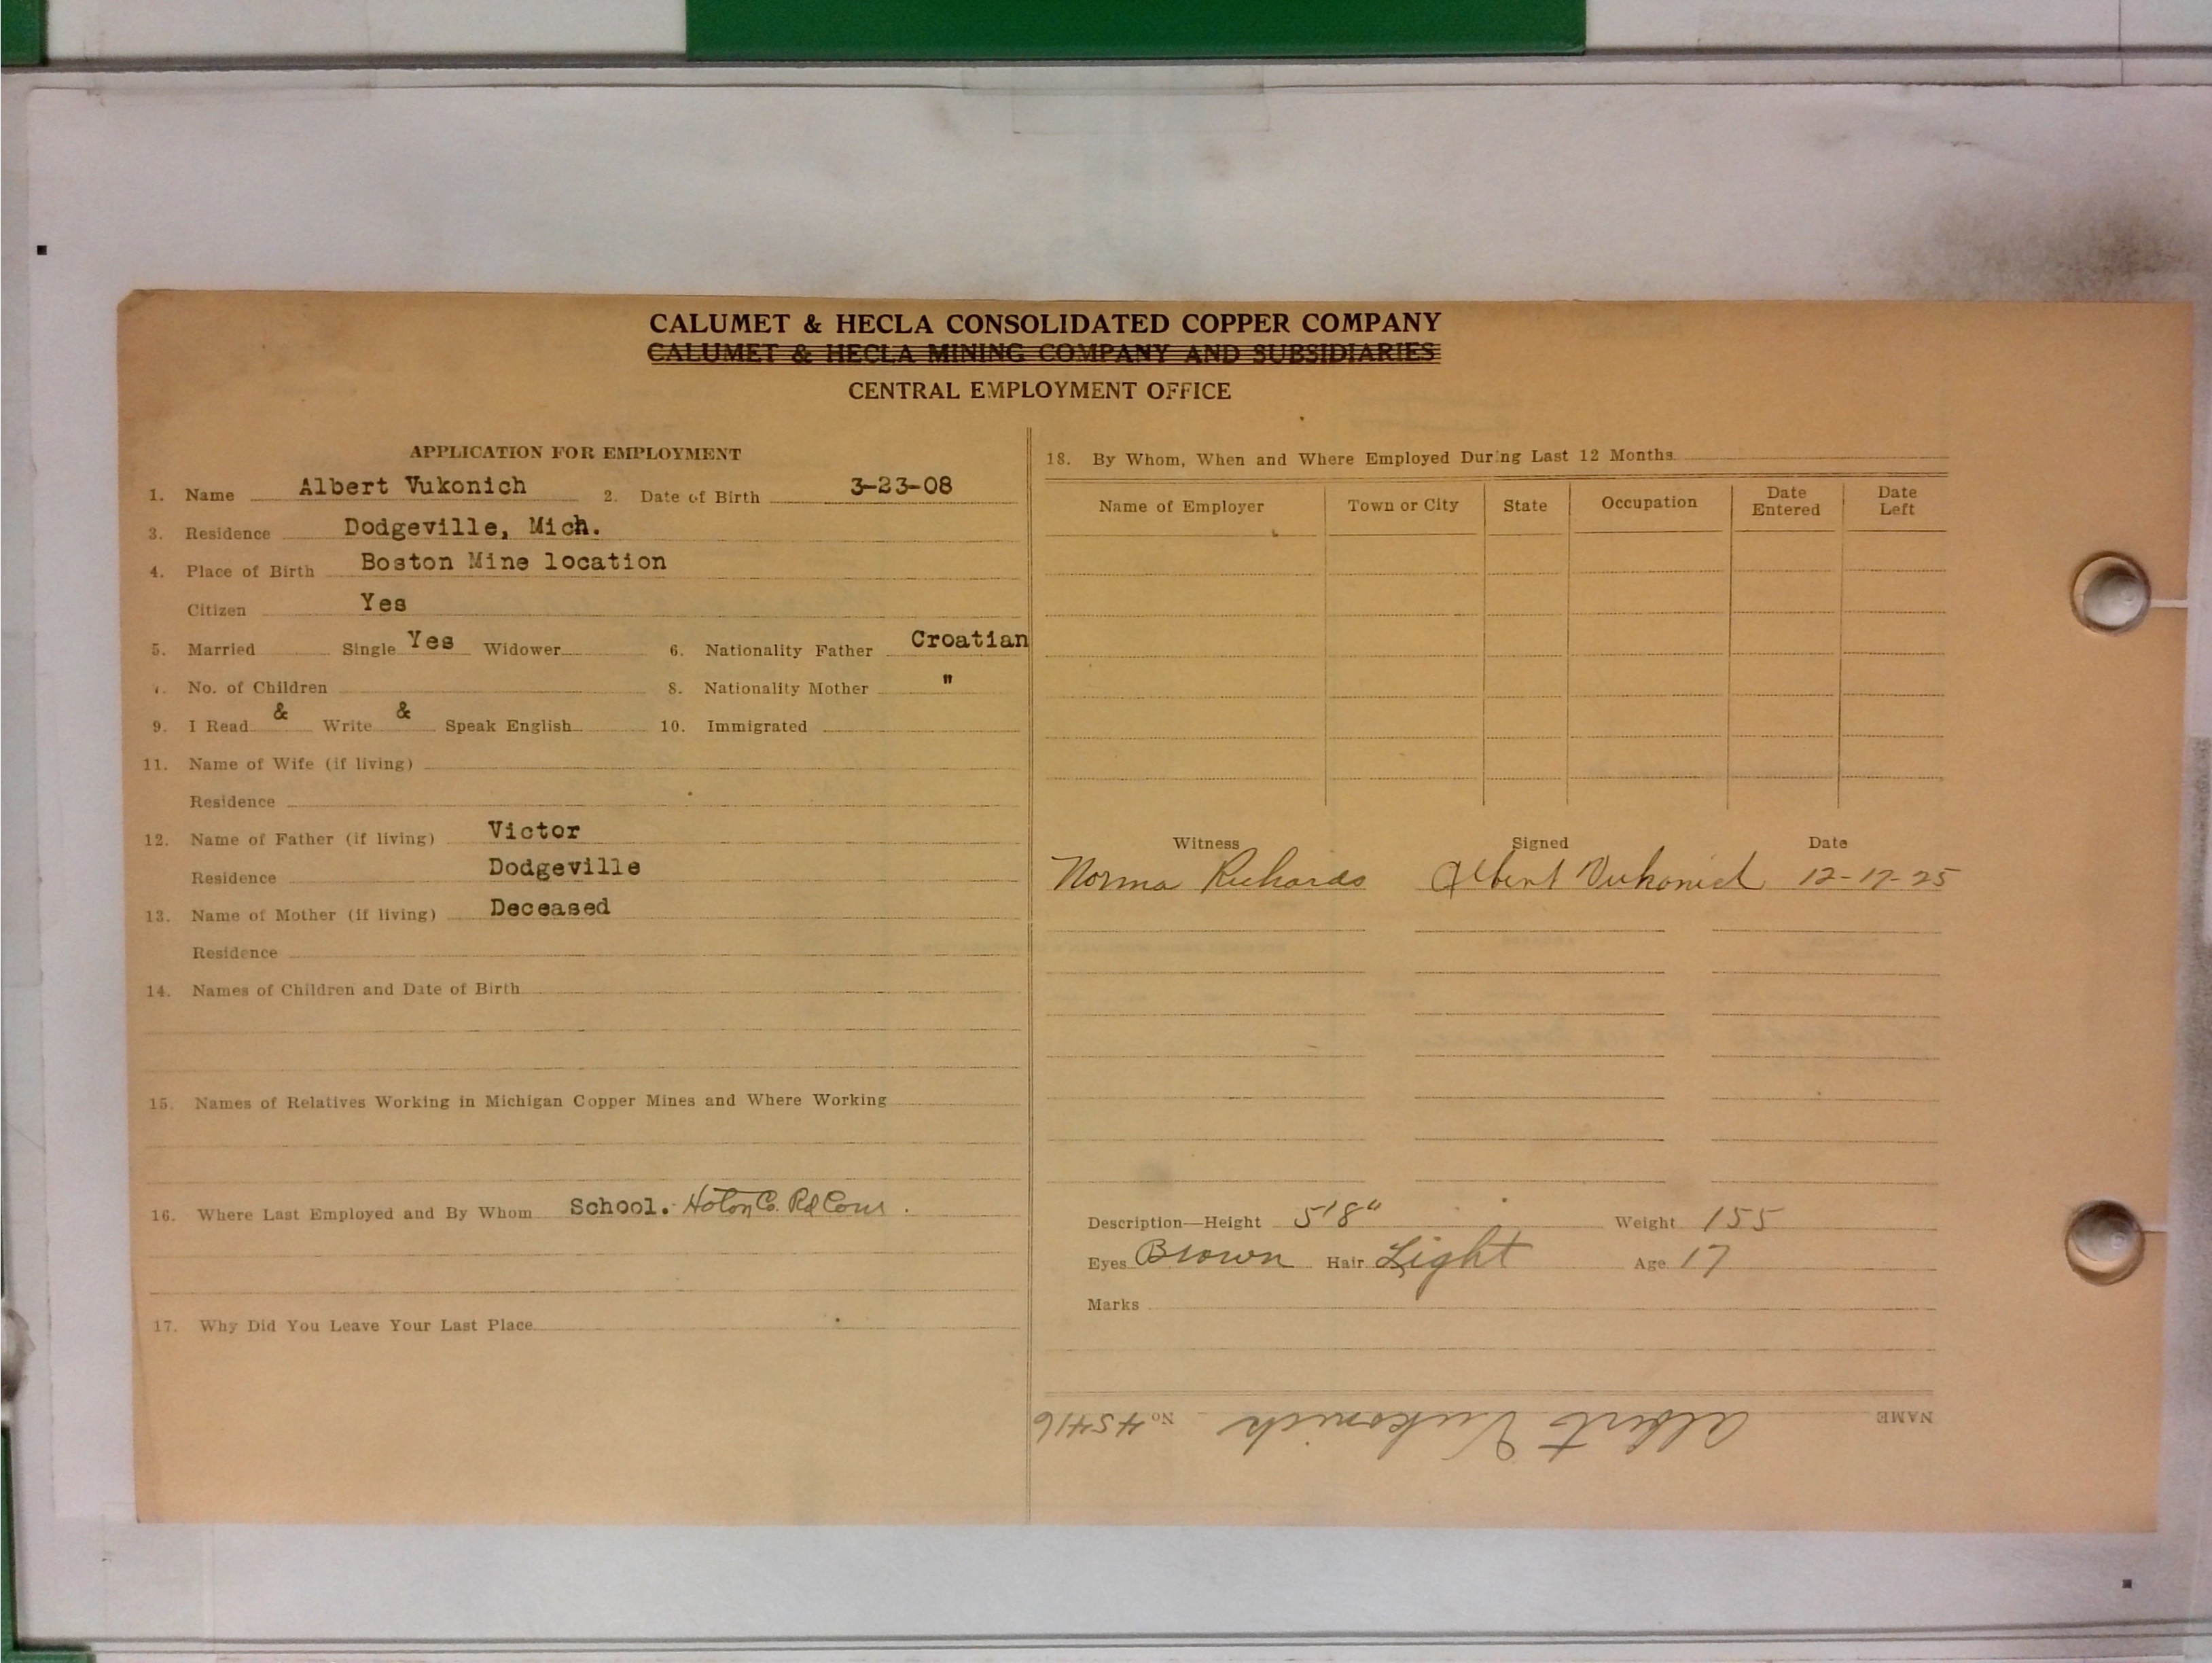 CALUMET & HECLA CONSOLIDATED COPPER COMPANY
CALUMET & HECLA MINING COMPANY AND SUBSIDIARIES
CENTRAL EMPLOYMENT OFFICE
APPLICATION FOR EMPLOYMENT
1. Name Albert Vukonich 2. Date of Birth 3-23-08
3. Residence Dodgeville, Mich.
4. Place of Birth Boston Mine location
Citizen Yes
5. Married Single Yes Widower 6. Nationality Father Croatian
7. No. of Children 8. Nationality Mother "
9. I Read & Write & Speak English 10. Immigrated
11. Name of Wife (if living)
Residence
12. Name of Father (if living) Victor
Residence Dodgeville
13. Name of Mother (if living) Deceased
Residence
14. Names of Children and Date of Birth
15. Names of Relatives Working in Michigan Copper Mines and Where Working
16. Where Last Employed and By Whom School. Hoton Co. Rd Com.
17. Why Did You Leave Your Last Place
18. By Whom, When and Where Employed During Last 12 Months
Name of Employer Town or City State Occupation Date Entered Date Left
Witness Signed Date
Norma Richards Albert Vukonich 12-17-25
Description—Height 5'8" Weight 155
Eyes Brown Hair Light Age 17
Marks
NAME Albert Vukonich No 45416